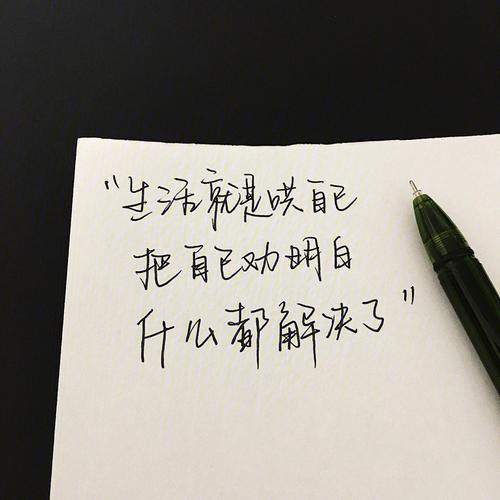 “生活就是哄自己
把自己劝明白
什么都解决了”